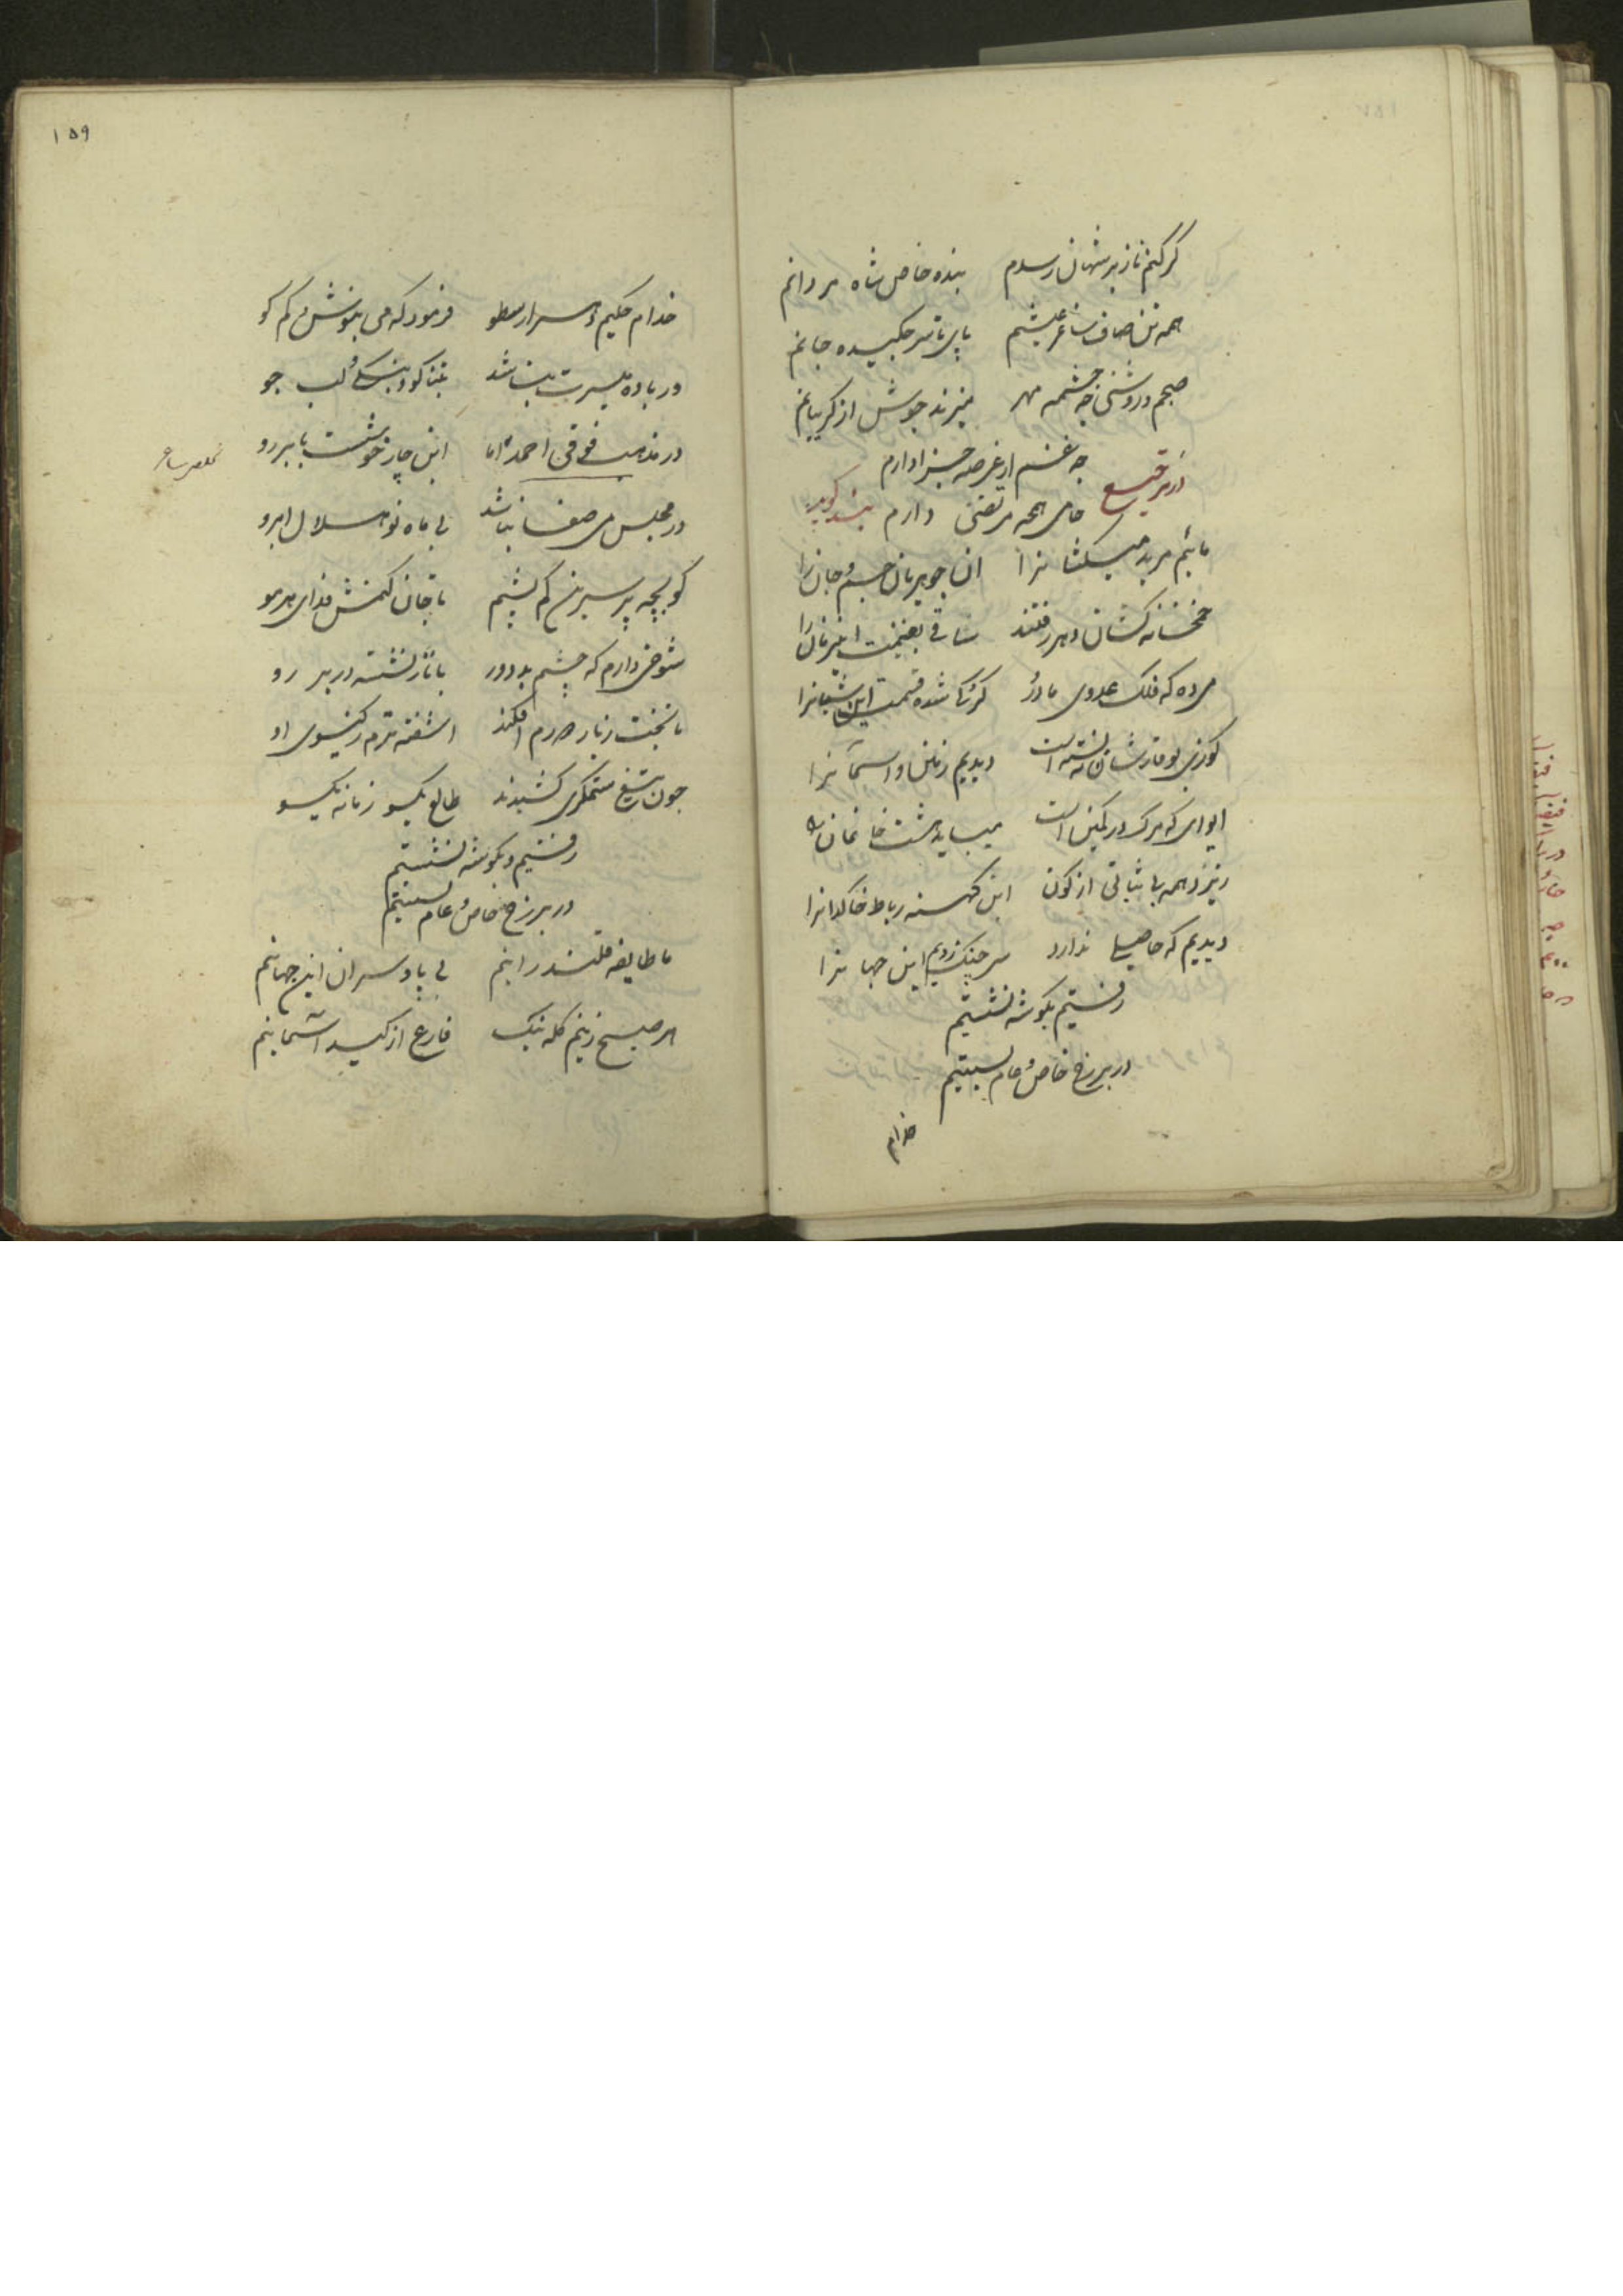 گر کنم ناز بر شهان رسدم بنده خاص شاه مردانم
همه تن صاف ساغر عیشم پای تا سر چکیده جانم
صبحم و روشنی چشمه مهر میزند جوش از گریبانم
چه غم از عرصه جزا دارم
حامی همچو مرتضی دارم
در ترجیع بند گوید
مائیم مرید میکشانرا ان جوهریان جسم و جانرا
خمخانه کشان دهر رفتند ساقی بغنیمت این زمانرا
می ده که فلک عدوی مادر گرگ شده قسمت این شبانرا
دیدیم زمین و اسمانرا
ایوای که مرگ در کمین است میباید هشت خانمانرا
ریزد همه بی ثباتی از کون این کهنه رباط خاکدانرا
دیدیم که حاصلی ندارد سر چنگ زدیم این جهانرا
رفتیم بگوشه نشستیم
در برزخ خاص و عام بستیم
خدام
۱۵۹
خدام حکیم و سر ارسطو فرمود که می بنوش و کم گو
ور باده میسرت نباشد بنگ لب جو
در مذهب فوقی احمد اما این چار خوشست با پررو
در مجلس می صفا نباشد بی ماه نو هلال ابرو
گو بچه پر سیرین کم پشم تا جان کنمش فدای هر مو
شوخی دارم که چشم بد دور با ناز نشسته در بر رو
تا بخت ز یار دورم افکند اشفته ترم ز گیسوی او
چون تیغ ستمگری کشیدند طالع یکسو زمانه یکسو
رفتیم و بگوشه نشستیم
در برزخ خاص و عام بستیم
ما طایفه قلندرانیم بی پا و سران این جهانیم
هر صبح زنیم کله بنگ فارغ از کید اسمانیم